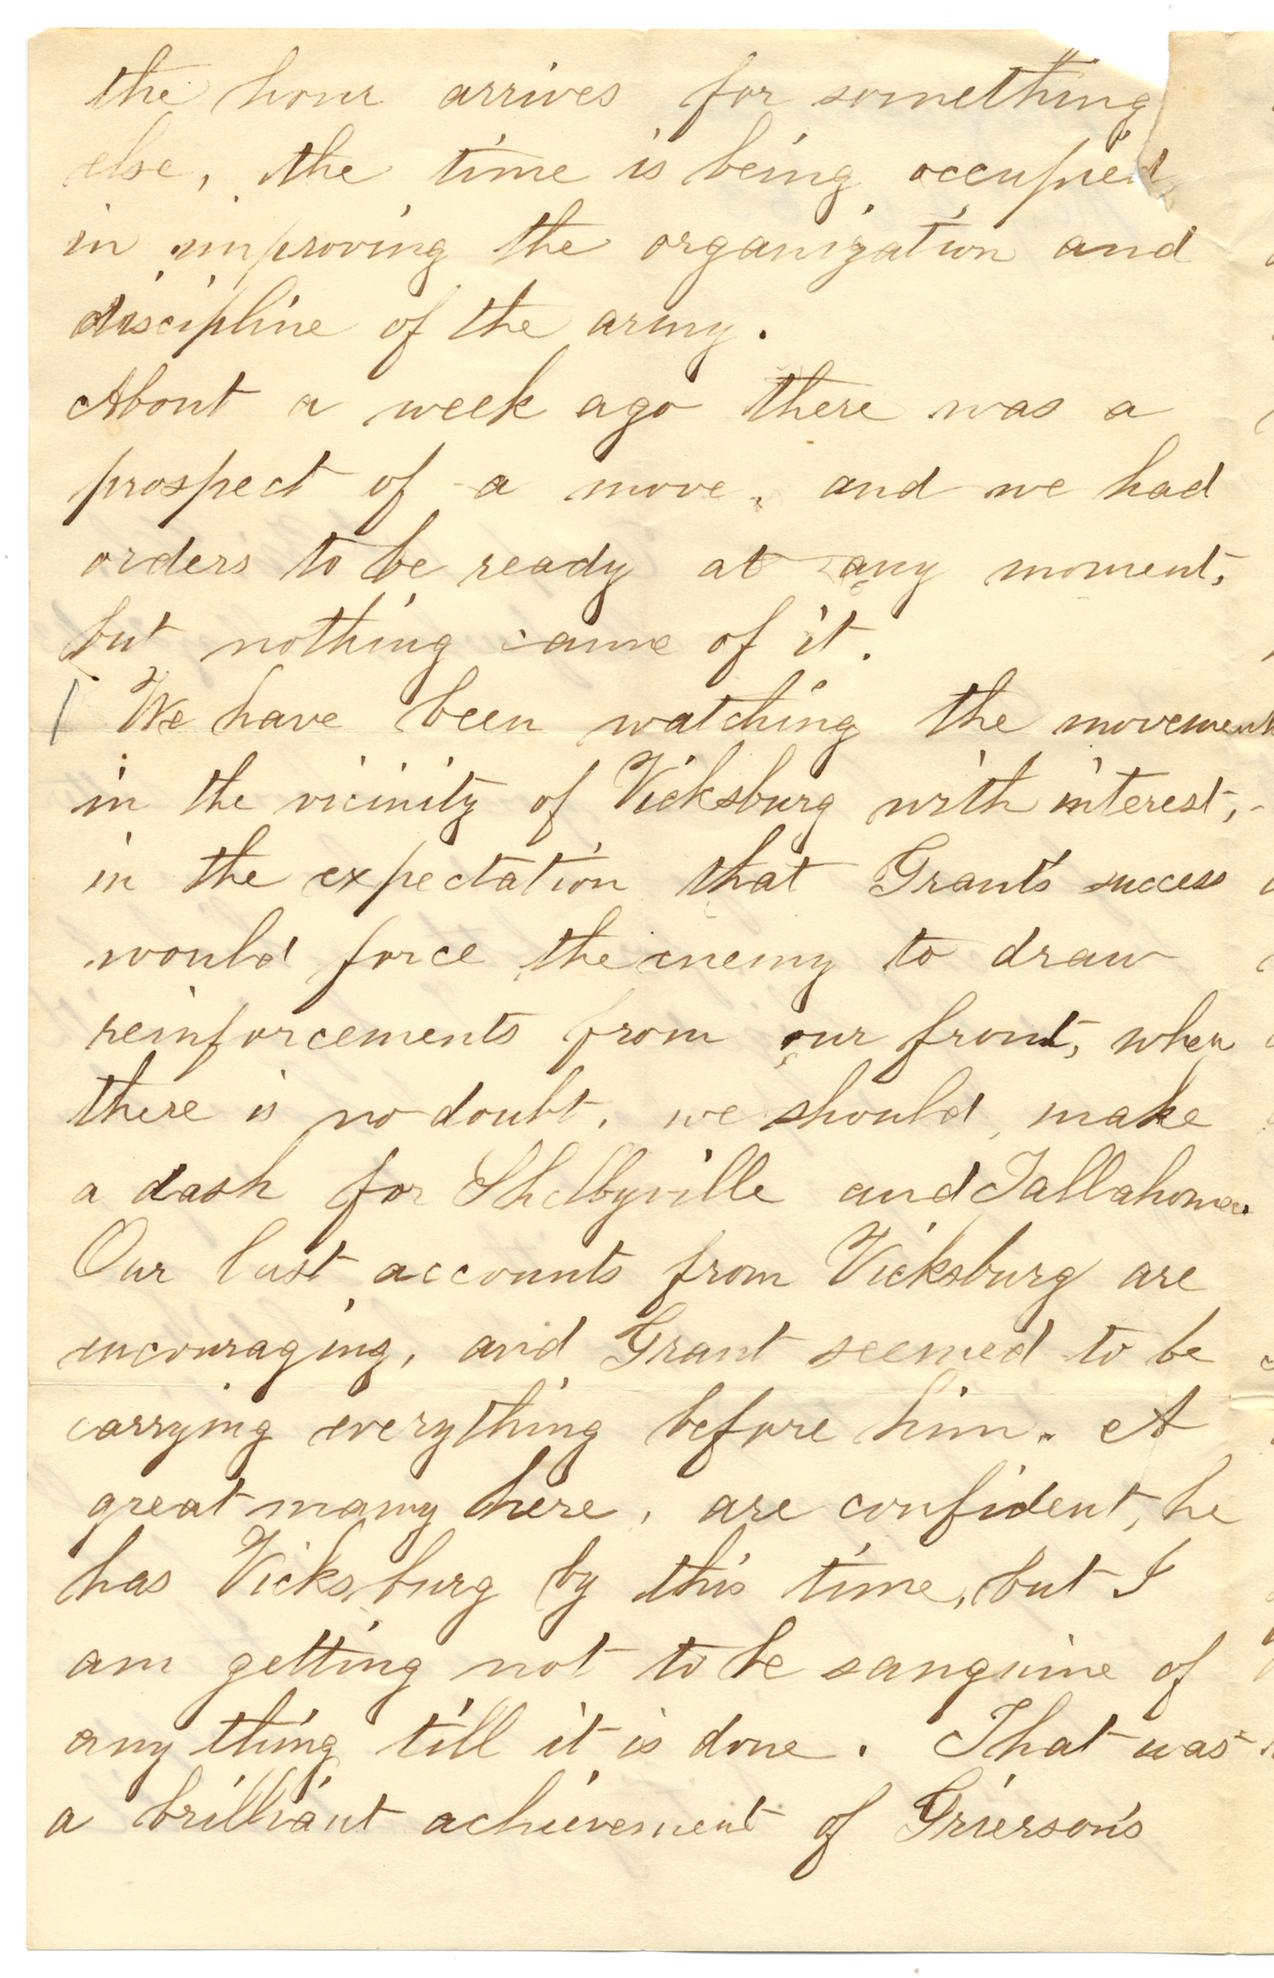 the hour arrives for something
else, the time is being occupied
in improving the organization and
discipline of the army.
About a week ago there was a
prospect of a move, and we had
orders to be ready at any moment,
but nothing came of it.
We have been watching the movements
in the vicinity of Vicksburg with interest,
in the expectation that Grant's success
would force the enemy to draw
reinforcements from our front, when
there is no doubt, we should, make
a dash for Shelbyville and Tallahoma.
Our last accounts from Vicksburg are
encouraging, and Grant seemed to be
carrying everything before him. A
great many here, are confident, he
has Vicksburg by this time, but I
am getting not to be sanguine of
any thing till it is done. That was
a brilliant achievement of Grierson's